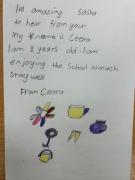 Its amazing Sasha
to hear from your
My name is Ceara
I am 8 years old. I am
enjoying the School somuch
Stay well
From Ceara